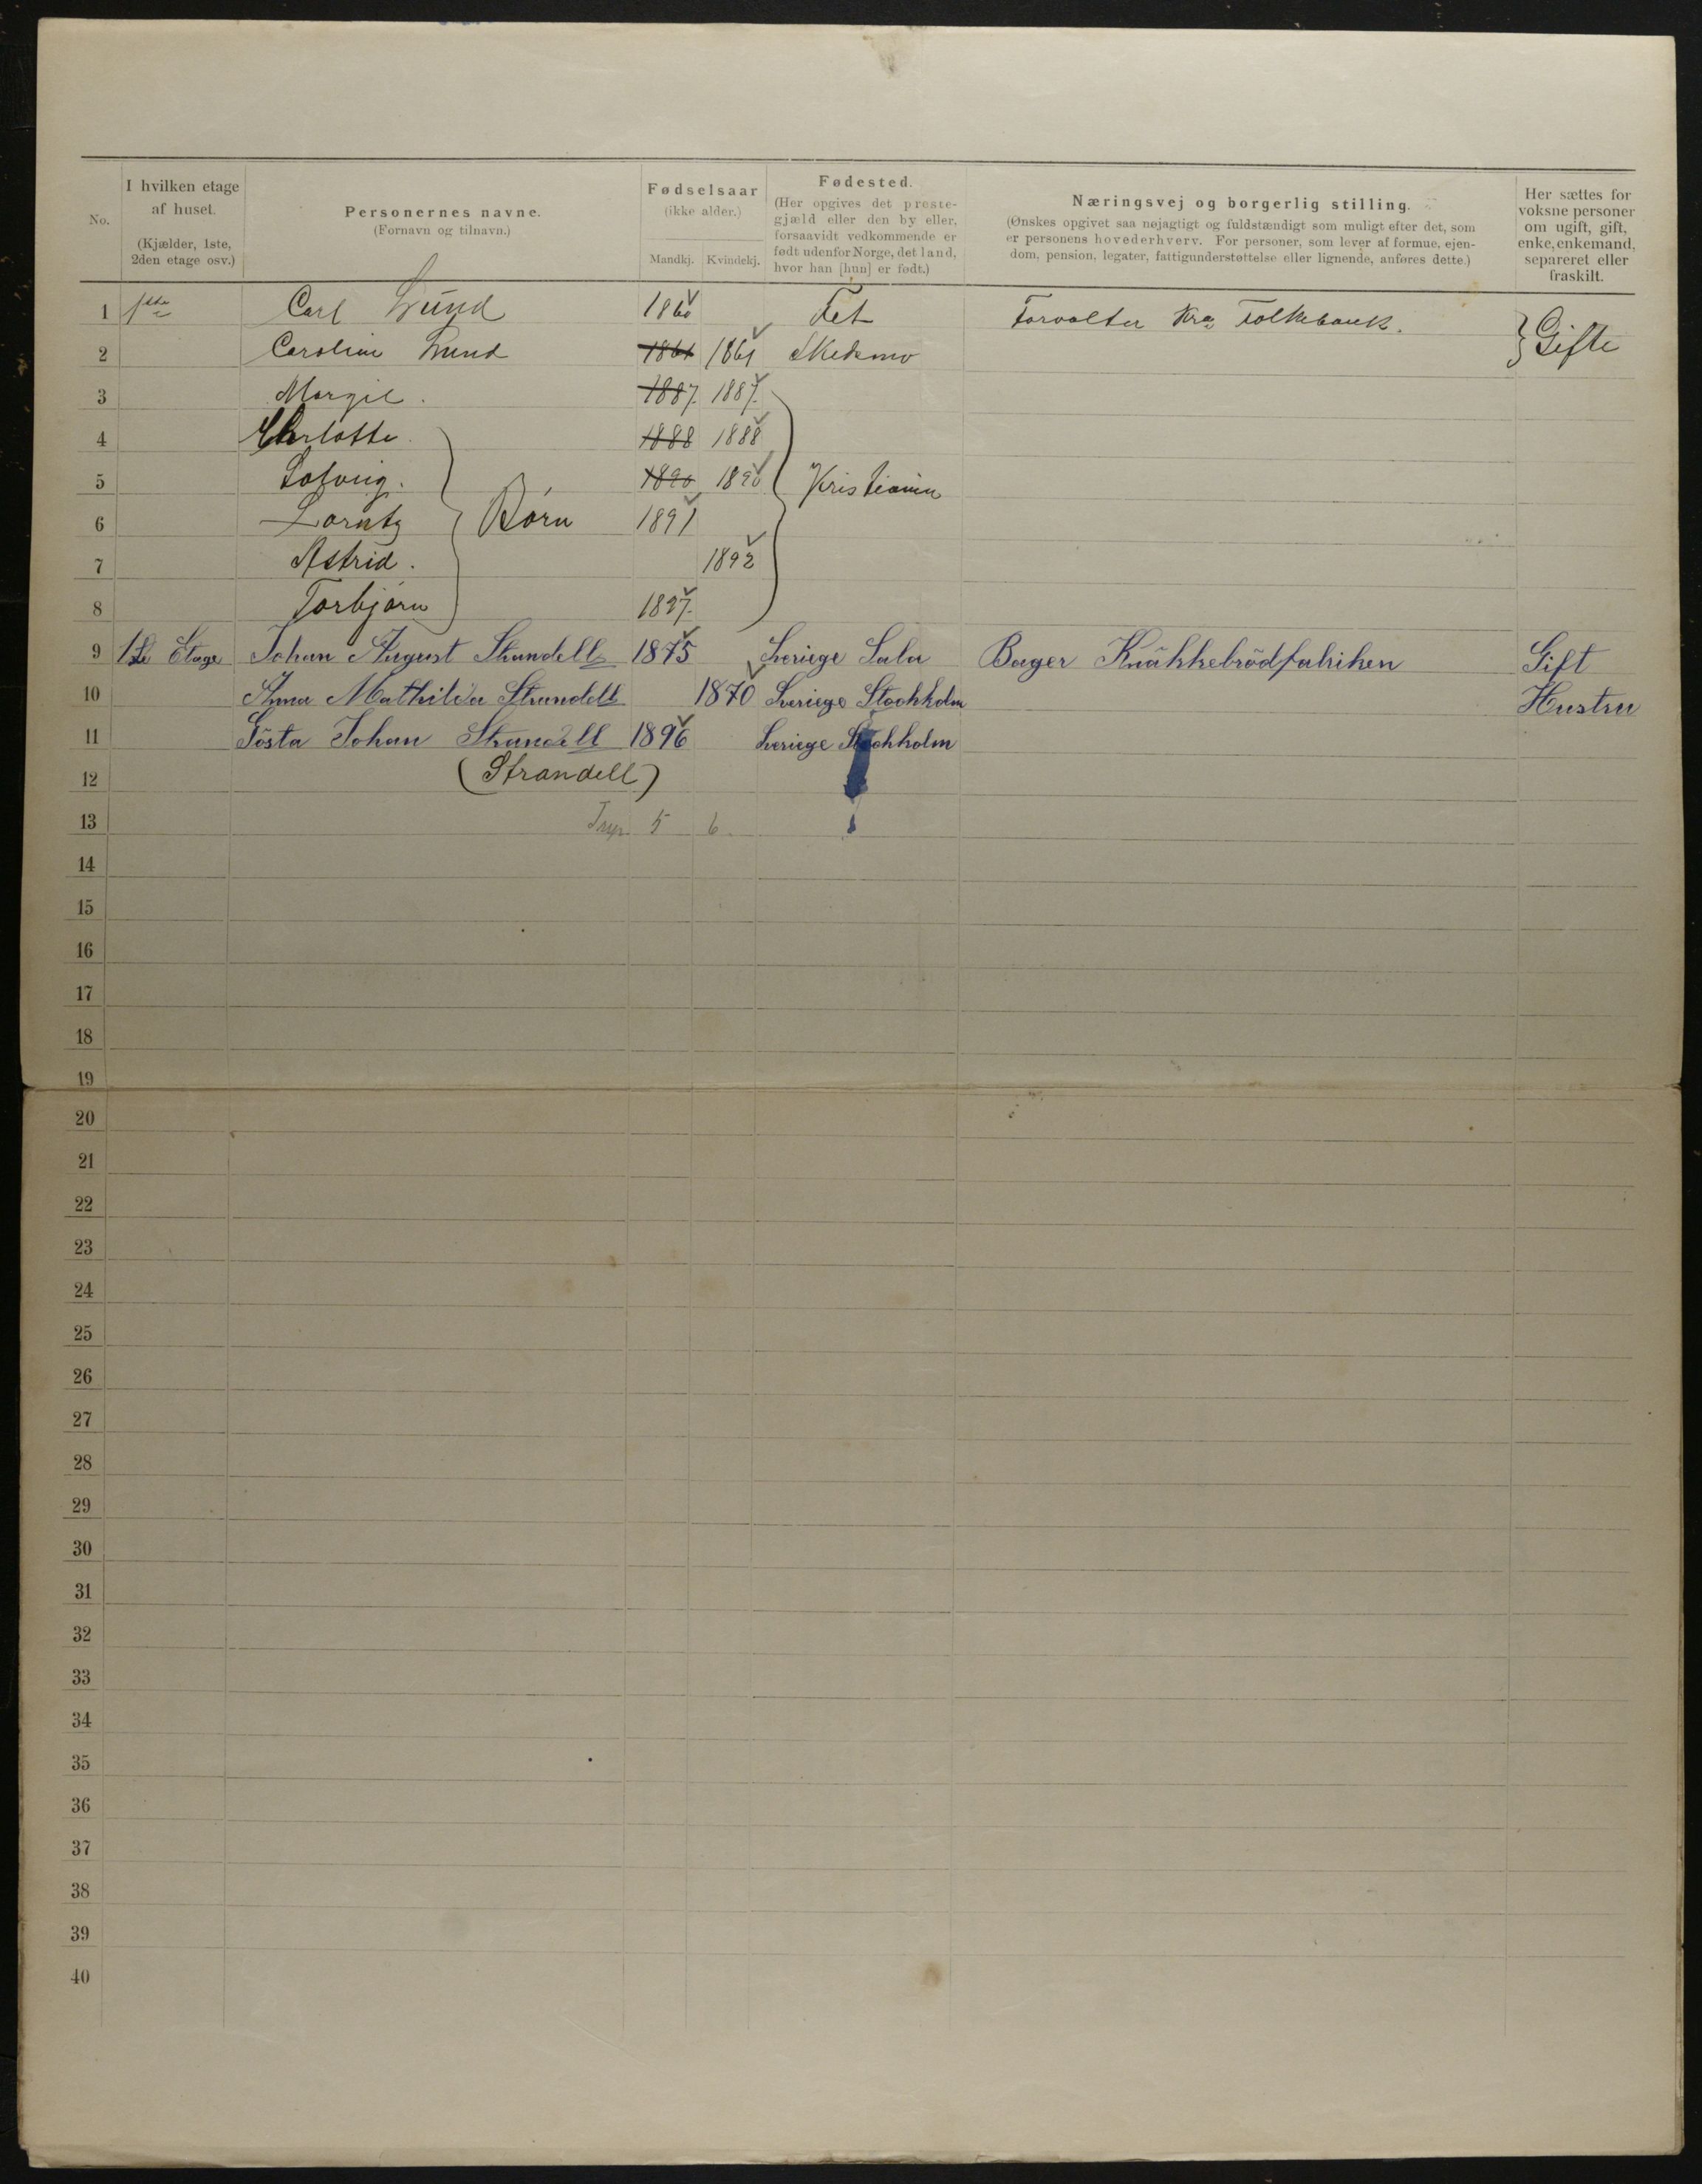 No.
I hvilken etage af huset. (Kjælder, 1ste, 2den etage osv.)
Personernes navne. (Fornavn og tilnavn.)
Fødselsaar (ikke alder.) Mandkj. Kvindekj.
Fødested. (Her opgives det prestegjæld eller den by eller, forsaavidt vedkommende er født udenfor Norge, det land, hvor han [hun] er født.)
Næringsvej og borgerlig stilling. (Ønskes opgivet saa nøjagtigt og fuldstændigt som muligt efter det, som er personens hovederhverv. For personer, som lever af formue, ejendom, pension, legater, fattigunderstøttelse eller lignende, anføres dette.)
Her sættes for voksne personer om ugift, gift, enke, enkemand, separeret eller fraskilt.
1 1ste Carl Lund 1860 Fet Forvalter Kra Folkebank. } Gifte
2 Caroline Lund 1861 1861 Skedsmo
3 Margit. 1887. 1887.
4 Charlotte. 1888 1888
5 Solveig. 1890 1890 Kristiania
6 Lorntz Børn 1891
7 Astrid. 1892
8 Torbjørn 1897.
9 1ste Etage Johan August Strandell 1875 Sveriege Sala Bager Knäkkebrödfabriken Gift
10 Anna Mathilda Strandell 1870 Sveriege Stockholm Hustru
11 Gösta Johan Strandell 1896 Sveriege Stockholm
12 (Strandell)
13 5 6
14
15
16
17
18
19
20
21
22
23
24
25
26
27
28
29
30
31
32
33
34
35
36
37
38
39
40